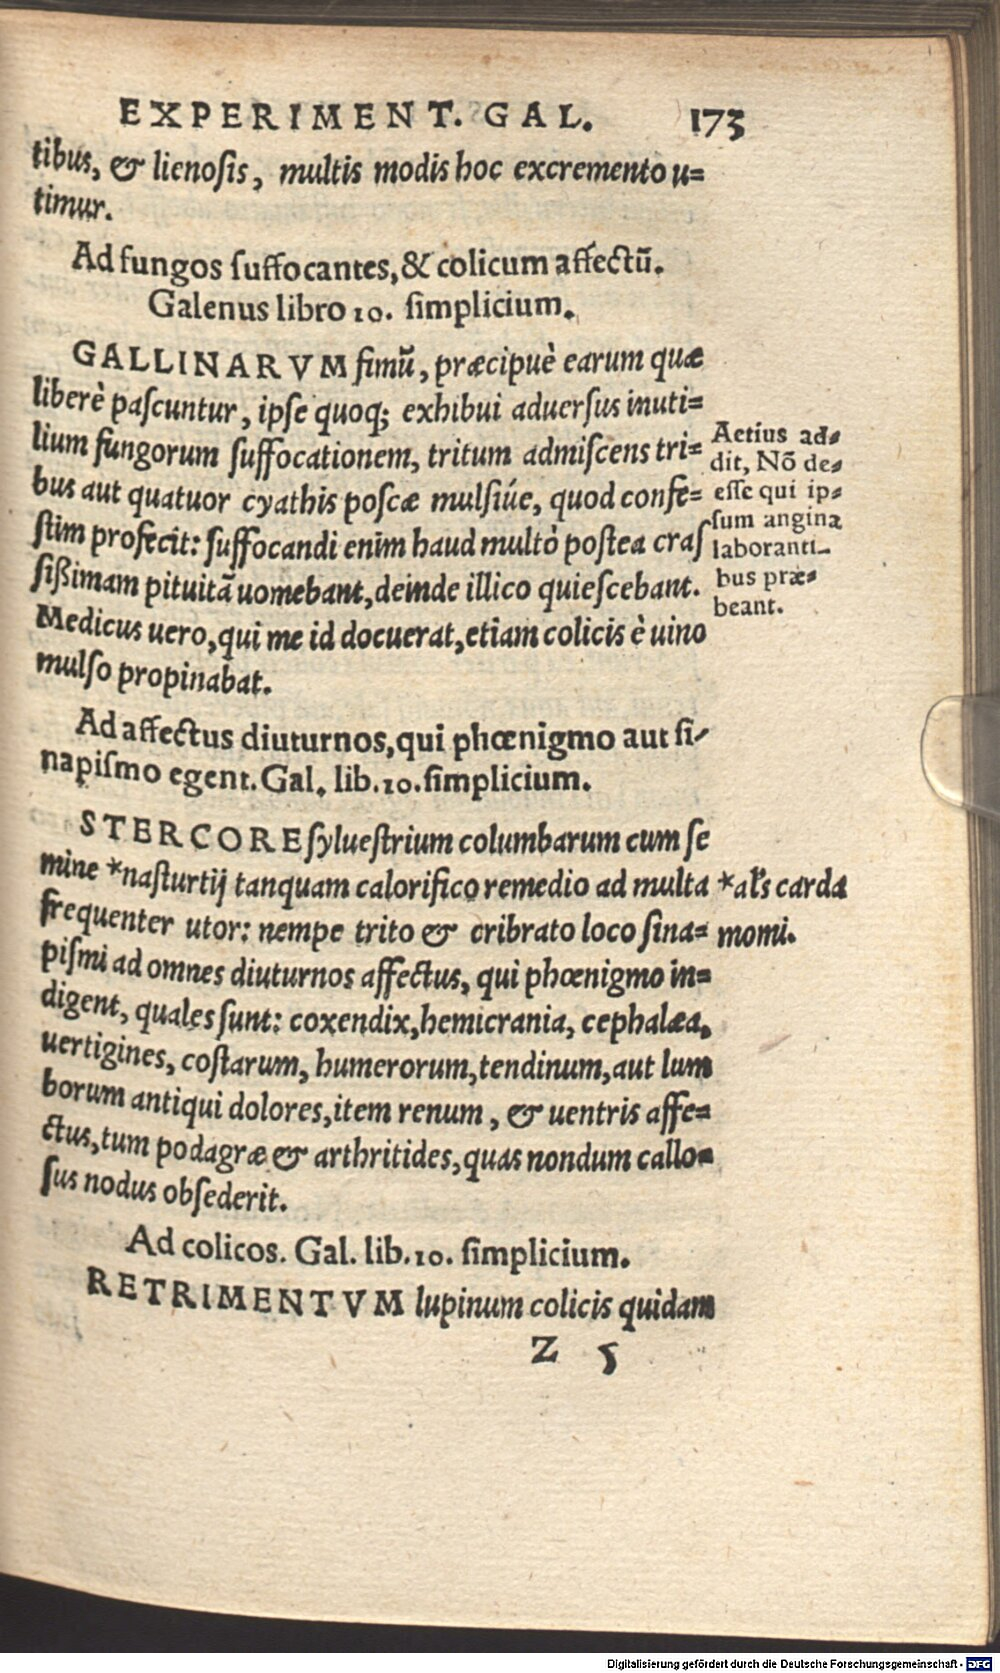 EXPERIMENT. GAL. 173
tibus, & lienoſis, multis modis hoc excremento u=
timur.
Ad fungos ſuffocantes, & colicum affectũ.
Galenus libro 10. ſimplicium.
GALLINARVM fimũ, præcipuè earum quæ
liberè paſcuntur, ipſe quoq; exhibui aduerſus inuti=
lium fungorum ſuffocationem, tritum admiſcens tri=
bus aut quatuor cyathis poſcæ mulſiúe, quod confe=
ſtim profecit: ſuffocandi enim haud multò poſtea craſ
ſißimam pituitã uomebant, deinde illico quieſcebant.
Medicus uero, qui me id docuerat, etiam colicis è uino
mulſo propinabat.
Aetius ad=
dit, Nõ de=
eſſe qui ip=
ſum angina
laboranti-
bus præ=
beant.
Ad affectus diuturnos, qui phœnigmo aut ſi-
napiſmo egent. Gal. lib. 10. ſimplicium.
STERCORE ſylueſtrium columbarum cum ſe
mine *naſturtij tanquam calorifico remedio ad multa
frequenter utor: nempe trito & cribrato loco ſina=
piſmi ad omnes diuturnos affectus, qui phœnigmo in=
digent, quales ſunt: coxendix, hemicrania, cephalæa,
uertigines, coſtarum, humerorum, tendinum, aut lum
borum antiqui dolores, item renum, & uentris affe=
ctus, tum podagræ & arthritides, quas nondum callo=
ſus nodus obſederit.
*al's carda
momi.
Ad colicos. Gal. lib. 10. ſimplicium.
RETRIMENTVM lupinum colicis quidam
Z 5
Digitalisierung gefördert durch die Deutsche Forschungsgemeinschaft - DFG